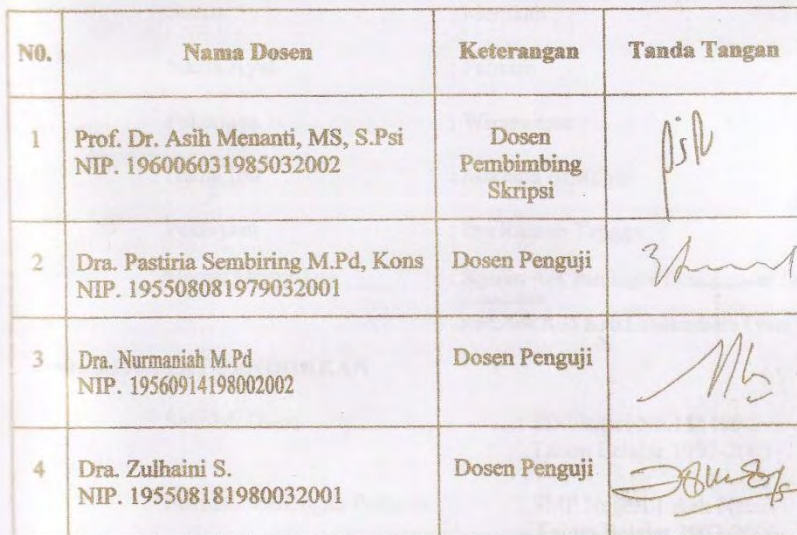 N0. Nama Dosen Keterangan Tanda Tangan
1 Prof. Dr. Asih Menanti, MS, S.Psi
NIP. 196006031985032002
Dosen
Pembimbing
Skripsi
2 Dra. Pastiria Sembiring M.Pd, Kons
NIP. 195508081979032001
Dosen Penguji
3 Dra. Nurmaniah M.Pd
NIP. 19560914198002002
Dosen Penguji
4 Dra. Zulhaini S.
NIP. 195508181980032001
Dosen Penguji